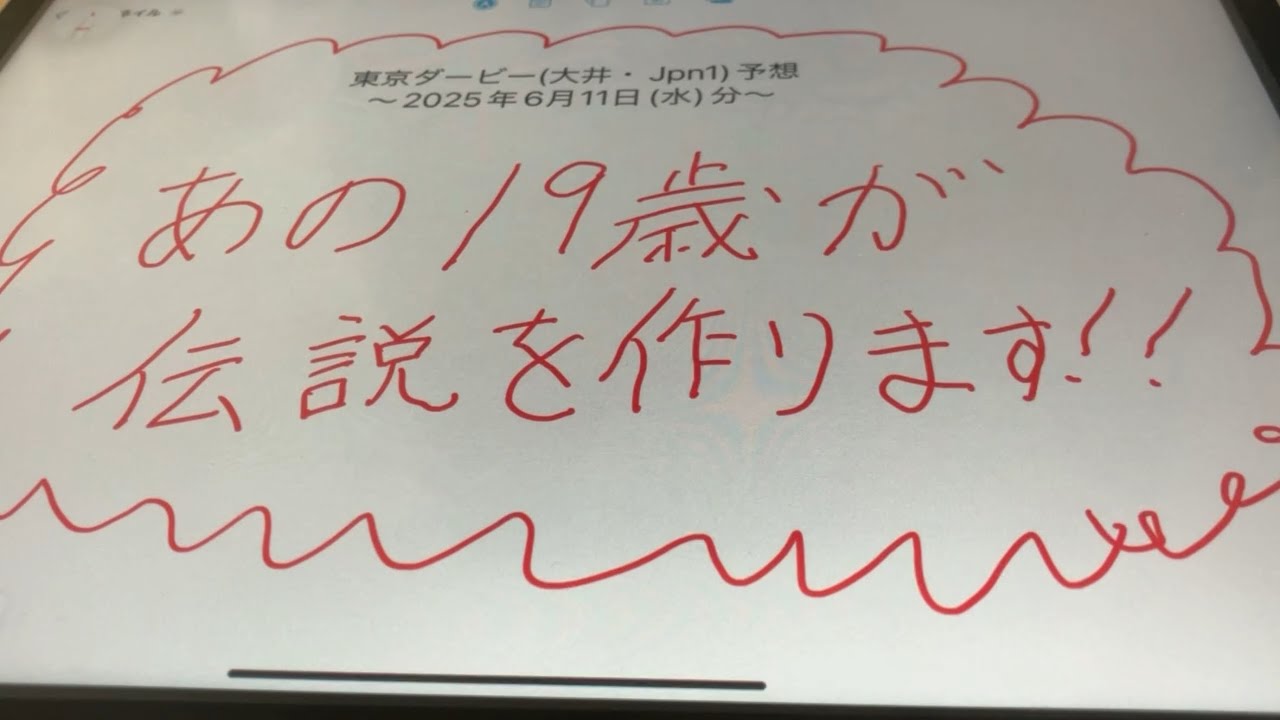 東京ダービー(大井・Jpn1)予想
～2025年6月11日(水)分～
あの19歳が
伝説を作ります!!